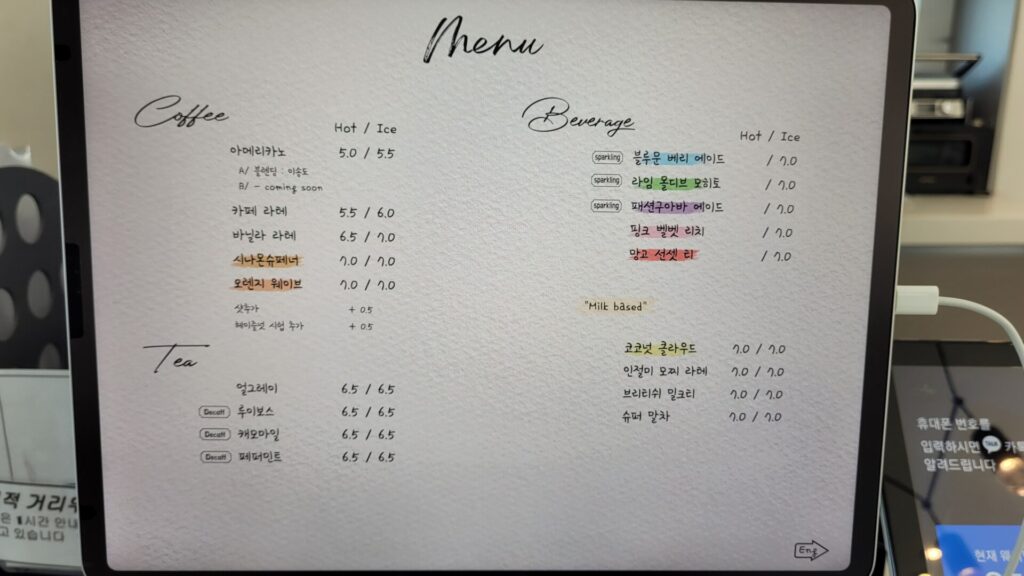 Menu
Coffee
Hot / Ice
아메리카노 5.0 / 5.5
A/ 블렌딩 : 이송도
B/ - coming soon
카페 라떼 5.5 / 6.0
바닐라 라떼 6.5 / 7.0
시나몬슈페너 7.0 / 7.0
오렌지 웨이브 7.0 / 7.0
샷추가 + 0.5
헤이즐넛 시럽 추가 + 0.5
Tea
얼그레이 6.5 / 6.5
Decaff 루이보스 6.5 / 6.5
Decaff 캐모마일 6.5 / 6.5
Decaff 페퍼민트 6.5 / 6.5
Beverage
Hot / Ice
sparkling 블루문 베리 에이드 / 7.0
sparkling 라임 올디브 모히토 / 7.0
sparkling 패션구아바 에이드 / 7.0
핑크 벨벳 리치 / 7.0
망고 선셋 티 / 7.0
"Milk based"
코코넛 클라우드 7.0 / 7.0
인절미 모찌 라떼 7.0 / 7.0
브리티쉬 밀크티 7.0 / 7.0
슈퍼 말차 7.0 / 7.0
Eng
적 거리
은 1시간 안내
고 있습니다
휴대폰 번호를
입력하시면 TALK 카톡
알려드립니다
현재 웨